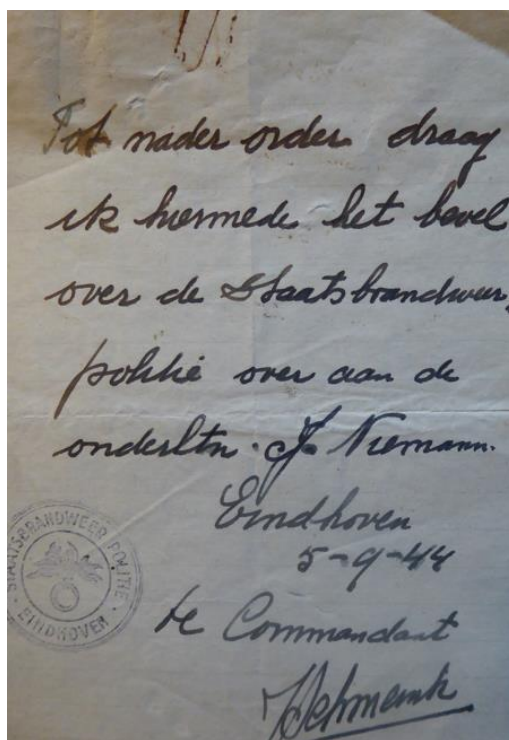 Tot nader order draag
ik hiermede het bevel
over de Staatsbrandweer,
politie over aan de
onderltn. J. Niemann.
Eindhoven
5-9-44
de Commandant
STAATSBRANDWEER POLITIE
EINDHOVEN